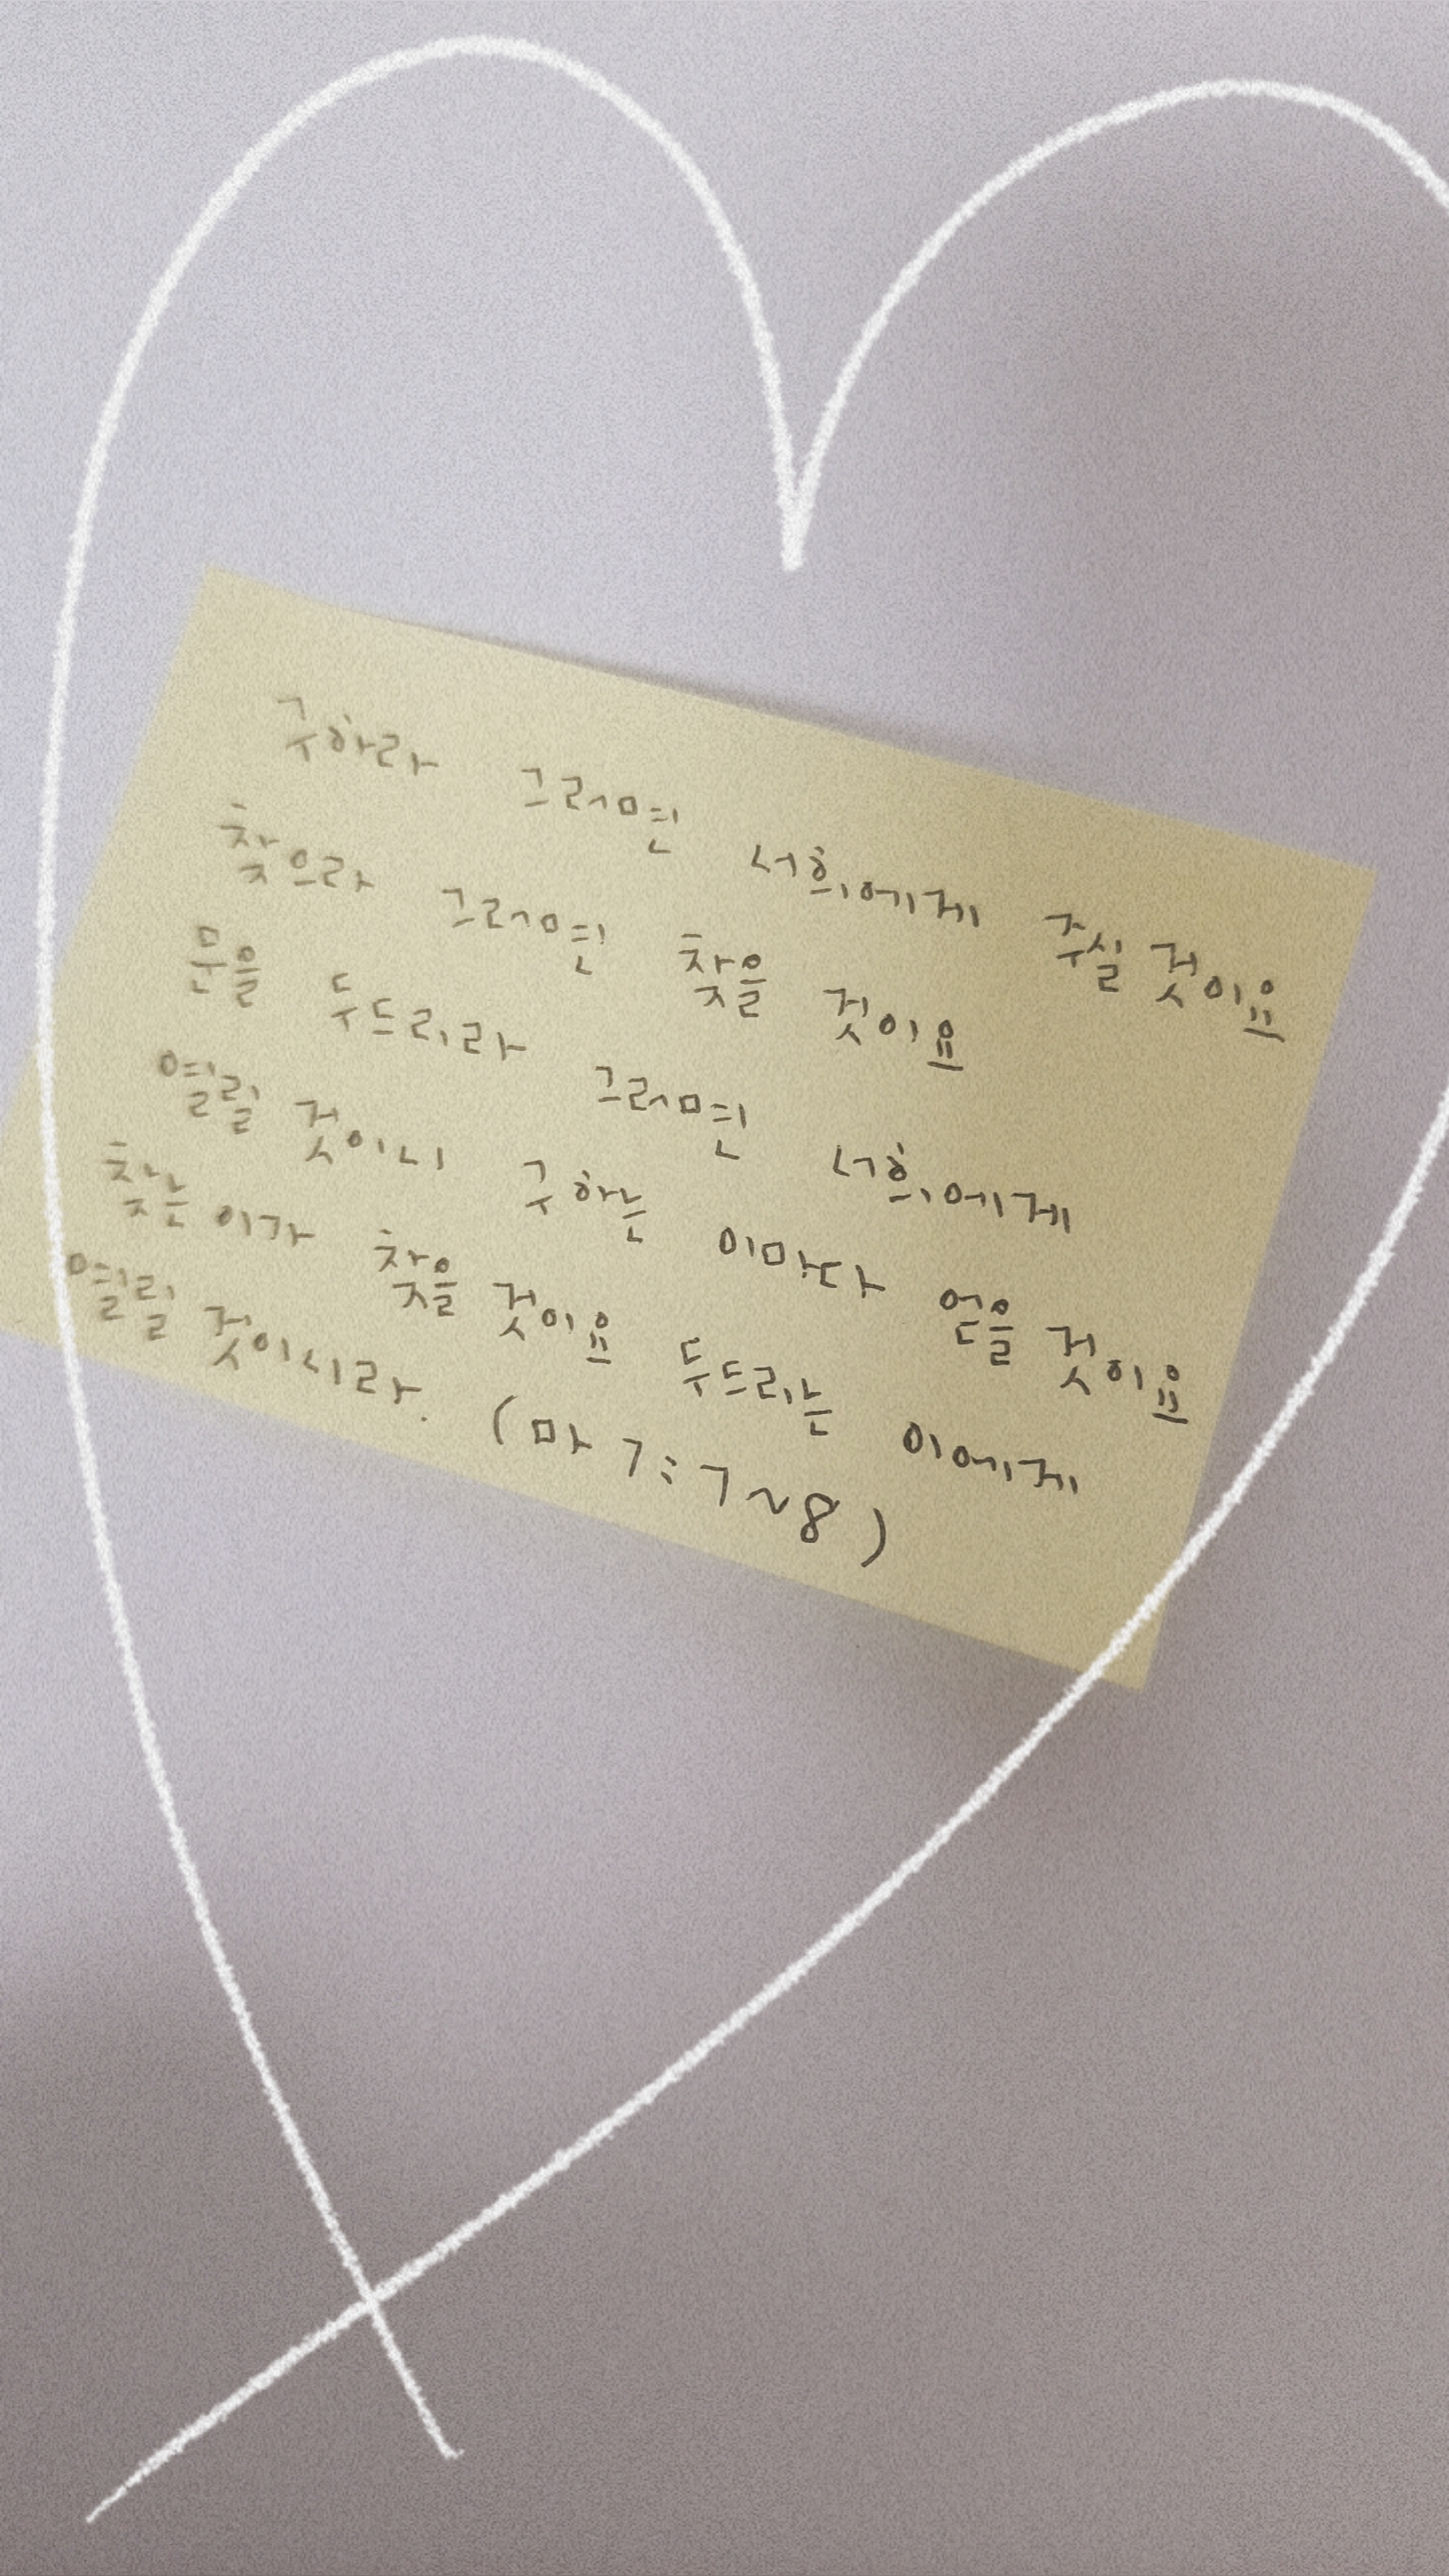 구하라 그러면 너희에게 주실 것이요
찾으라 그러면 찾을 것이요
문을 두드리라 그러면 너희에게
열릴 것이니 구하는 이마다 얻을 것이요
찾는 이가 찾을 것이요 두드리는 이에게
열릴 것이니라. (마 7:7~8)